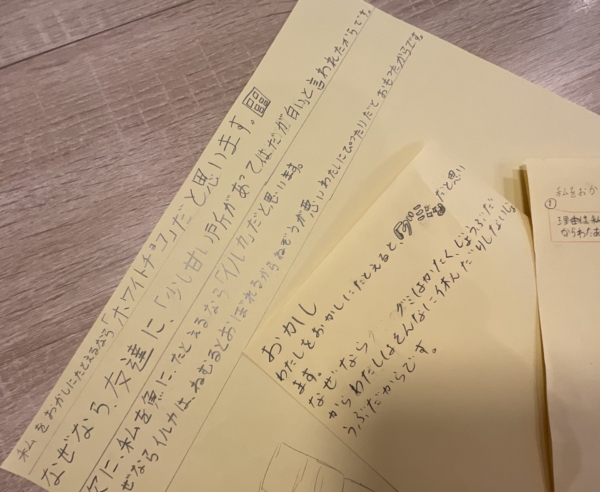 私をおかしにたとえるなら「ホワイトチョコ」だと思います。
なぜなら、友達に、「少し甘い所があってはだが白いっと言われたからです。
次に、私を魚に、たとえるなら「イルカ」だと思います。
ぜならイルカは、ねむるとおぼれるからねぞうが悪い わたしにぴったりだとおもったからです。
おかし
わたしをおかしにたとえると、だと思い
ます。
なぜなら、グミはかたく、じょうぶだ
からわたしはそんなに休んだりしない
うぶだからです。
私をおか
①